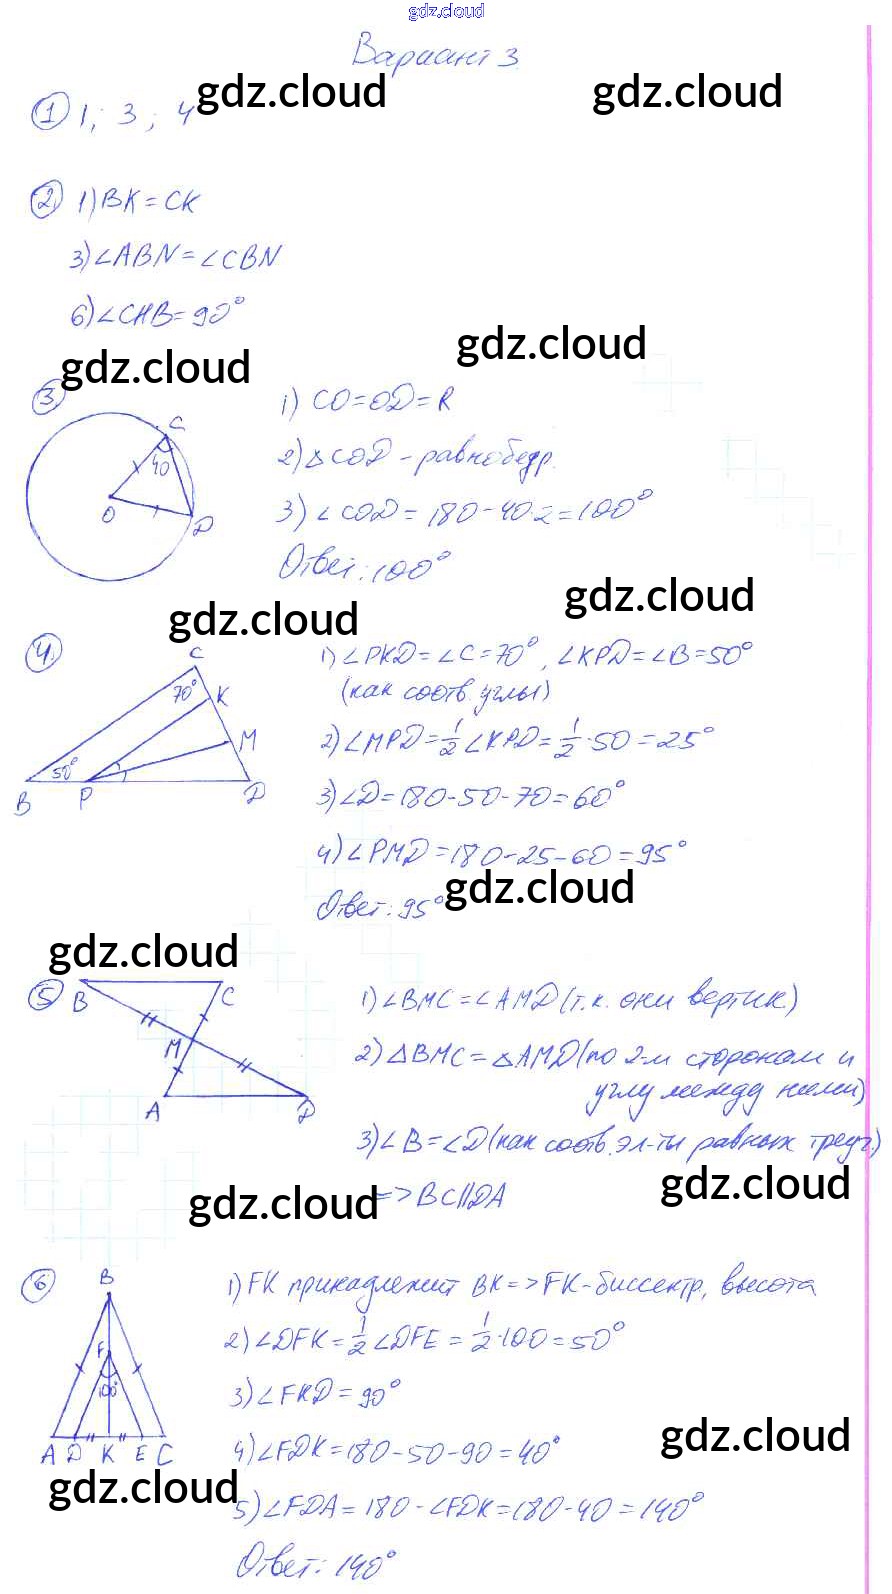 gdz.cloud
Вариант 3
gdz.cloud gdz.cloud
① 1; 3; 4
② 1) BK = CK
3) ∠ABN = ∠CBN
6) ∠CHB = 90°
gdz.cloud gdz.cloud
③
C
40
O
D
1) CO = OD = R
2) △COD - равнобедр.
3) ∠COD = 180 - 40·2 = 100°
Ответ: 100°
gdz.cloud gdz.cloud
④
C
70°
K
M
50°
B P D
1) ∠PKD = ∠C = 70°, ∠KPD = ∠B = 50°
(как соотв. углы)
2) ∠MPD = 1/2 ∠KPD = 1/2 · 50 = 25°
3) ∠D = 180 - 50 - 70 = 60°
4) ∠PMD = 180 - 25 - 60 = 95°
Ответ: 95°
gdz.cloud
gdz.cloud
⑤
B C
M
A D
1) ∠BMC = ∠AMD (т.к. они вертик)
2) △BMC = △AMD (по 2-м сторонам и
углу между ними)
3) ∠B = ∠D (как соотв. эл-ты равных треуг.)
=> BC||DA
gdz.cloud gdz.cloud
⑥
B
F
100°
A D K E C
1) FK принадлежит BK => FK - биссектр, высота
2) ∠DFK = 1/2 ∠DFE = 1/2 · 100 = 50°
3) ∠FKD = 90°
4) ∠FDK = 180 - 50 - 90 = 40°
5) ∠FDA = 180 - ∠FDK = 180 - 40 = 140°
Ответ: 140°
gdz.cloud
gdz.cloud